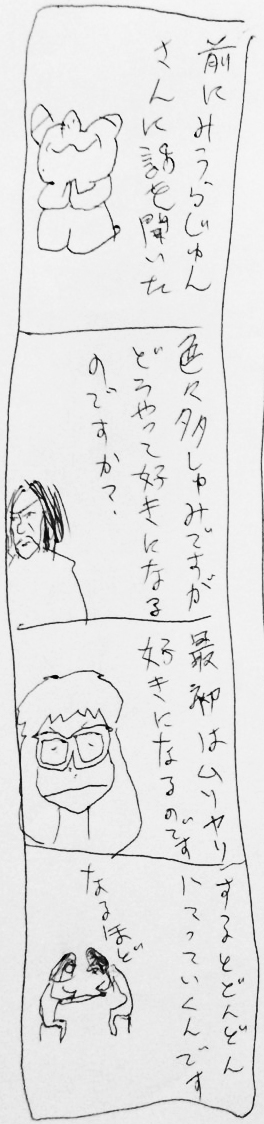 前にみうらじゅん
さんに話を聞いた
色々多しゅみですが
どうやって好きになる
のですか?
最初はムリヤリ
好きになるのです
するとどんどん
にてっていくんです
なるほど